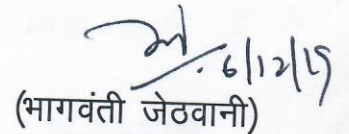 6/12/19
(भागवंती जेठवानी)